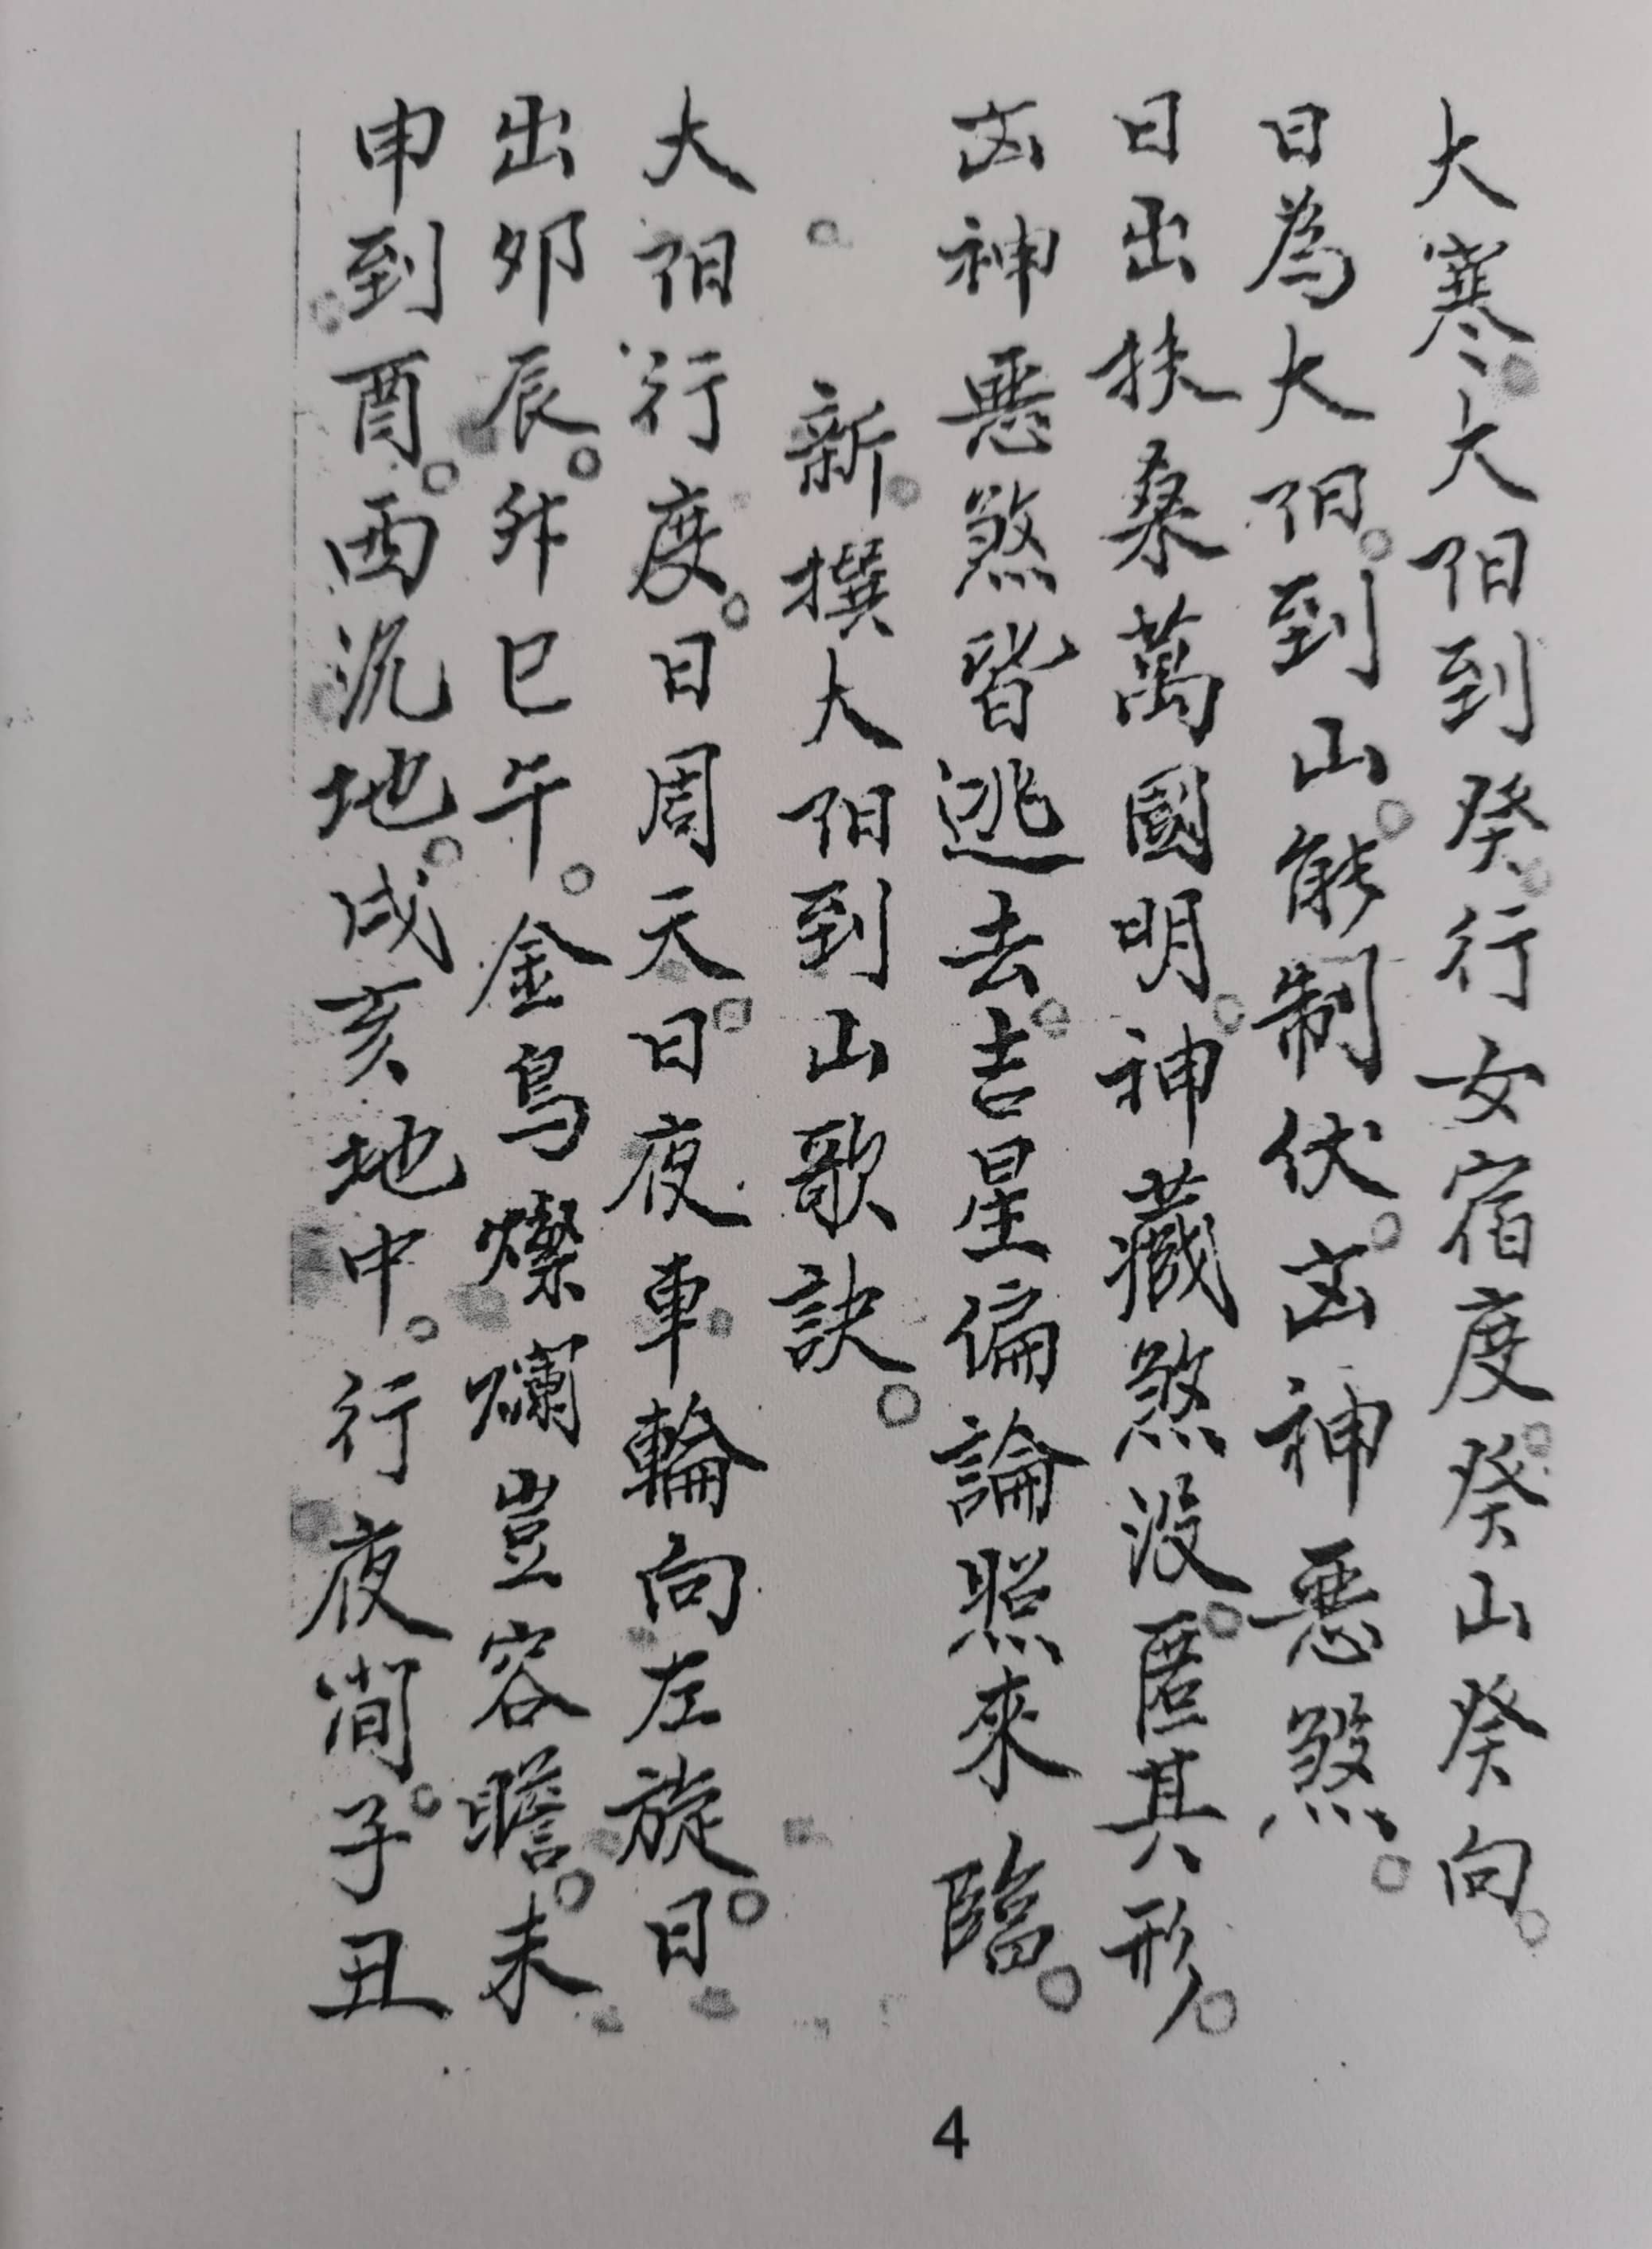 大寒大阳到癸行女宿度癸山癸向。
日為大阳。到山。能制伏。凶神惡煞。
日出扶桑萬國明。神藏煞没。匿其形。
凶神惡煞皆逃去。吉星偏論照來臨。
新撰大阳到山歌訣。
大阳行度。日周天。日夜車輪向左旋。日
出夘辰。斜巳午。金烏燦爛豈容瞻。未
申到酉。西沉地。戌亥地中。行夜間。子丑
4